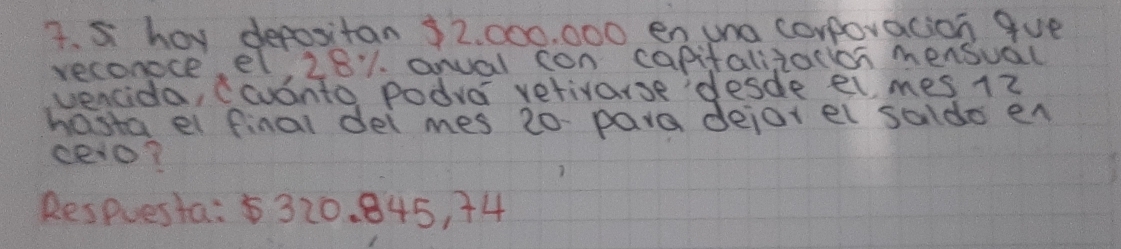 7. Si hoy depositan $2.000.000 en una corporación que
reconoce el 28% anual con capitalización mensual
vencida, ¿cuánto podrá retirarse desde el mes 12
hasta el final del mes 20 para dejar el saldo en
cero?
Respuesta: $320.845,74